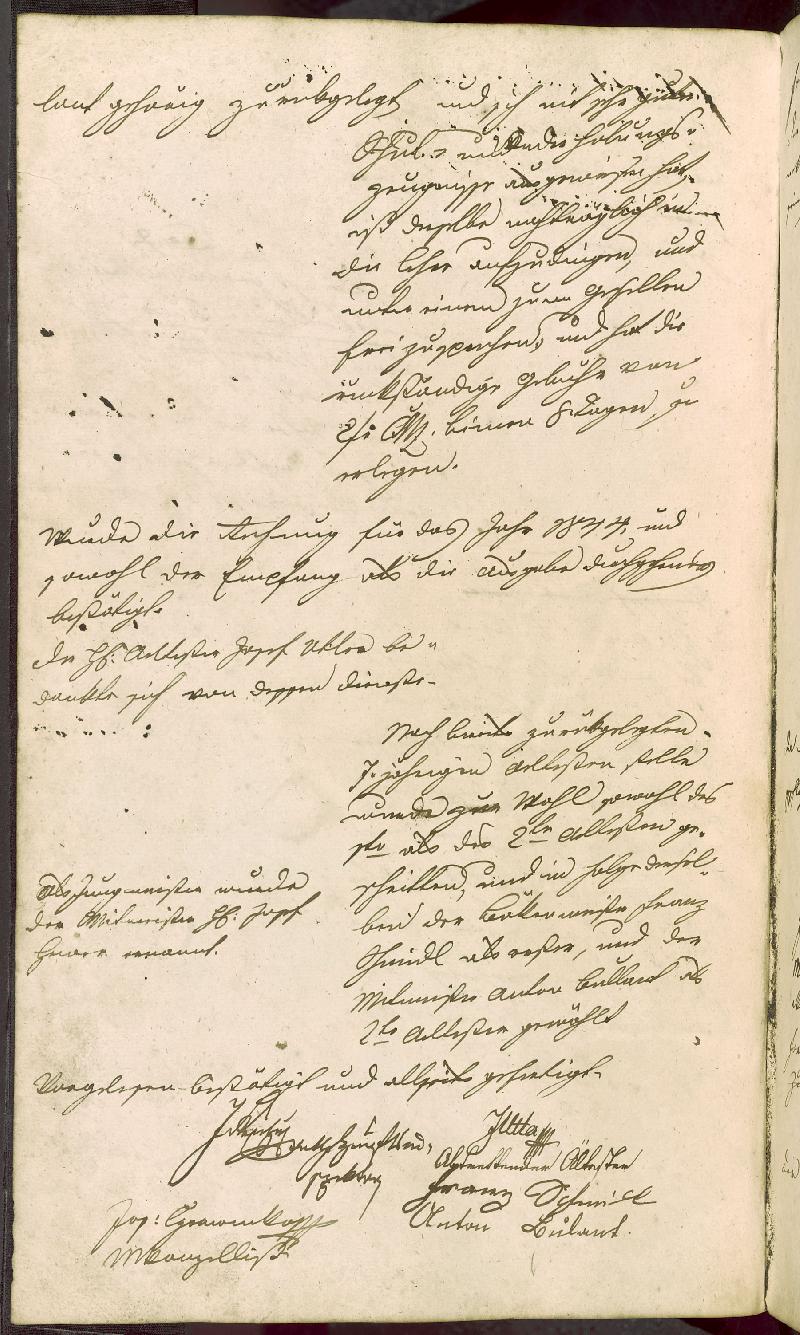 laut gehörig zurükgelegt, und sich mit sehr guten
Schul- und Wiederholungs-
zeugnisse ausgewiesen hat,
ist derselbe nachträglich in
die Lehre aufzudingen, und
unter einem zum Gesellen
frei zusprechen, und hat die
rükständige Gebühr von
CMz. binnen 8 Tagen zu
erlegen.
Wurde die Rechnung für das Jahr 1844 und
sowohl der Empfang als die Ausgabe durchgehends
bestätigt.
der H: Aelteste Josef be-
dankte sich von dessen Dienste.
Nach bereits zurükgelegten
jährigen Aeltesten stelle
wurde zur Wahl sowohl des
1ten als des 2ten Aeltesten ge-
schritten, und in folge dersel-
ben der Bäkermeister Franz
Schmidl als erster, und der
Mitmeister Anton Bullant als
2te Aeltester gewählt
Als Jungmeister wurde
der Mitmeister H: Josef
ernannt.
Vorgelesen bestätigt und allseits gefertigt.
Abtrettender Ältester
Franz Schmidl
Jos:
Anton Bulant.